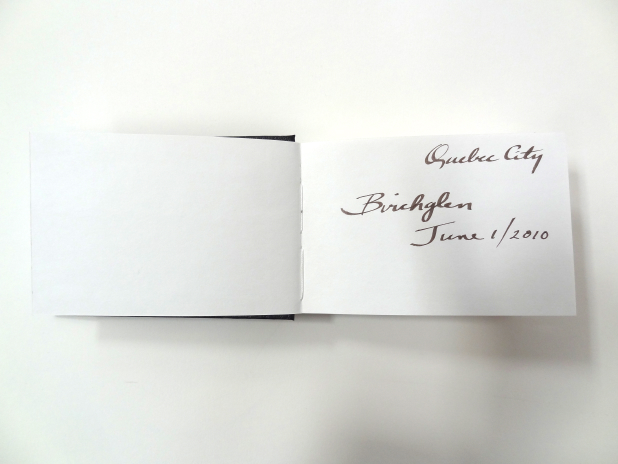 Quebec City
Birchglen
June 1/2010